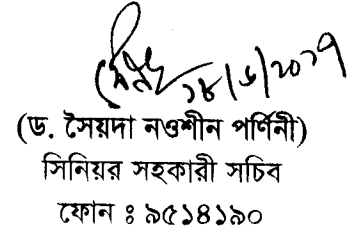 ১৮/৬/২০১৭
(ড. সৈয়দা নওশীন পর্ণিনী)
সিনিয়র সহকারী সচিব
ফোন ঃ ৯৫১৪১৯০